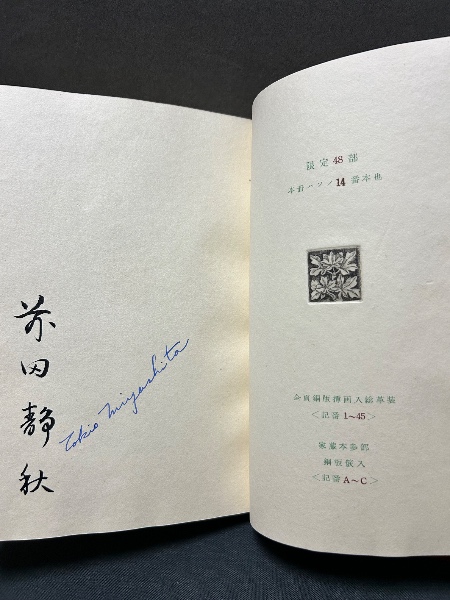 前田静秋
Tokio Miyashita
限定48部
本書ハソノ14番本也
全頁銅版挿画入総革装
<記番1~45>
家蔵本参部
銅版 入
<記番A~C>